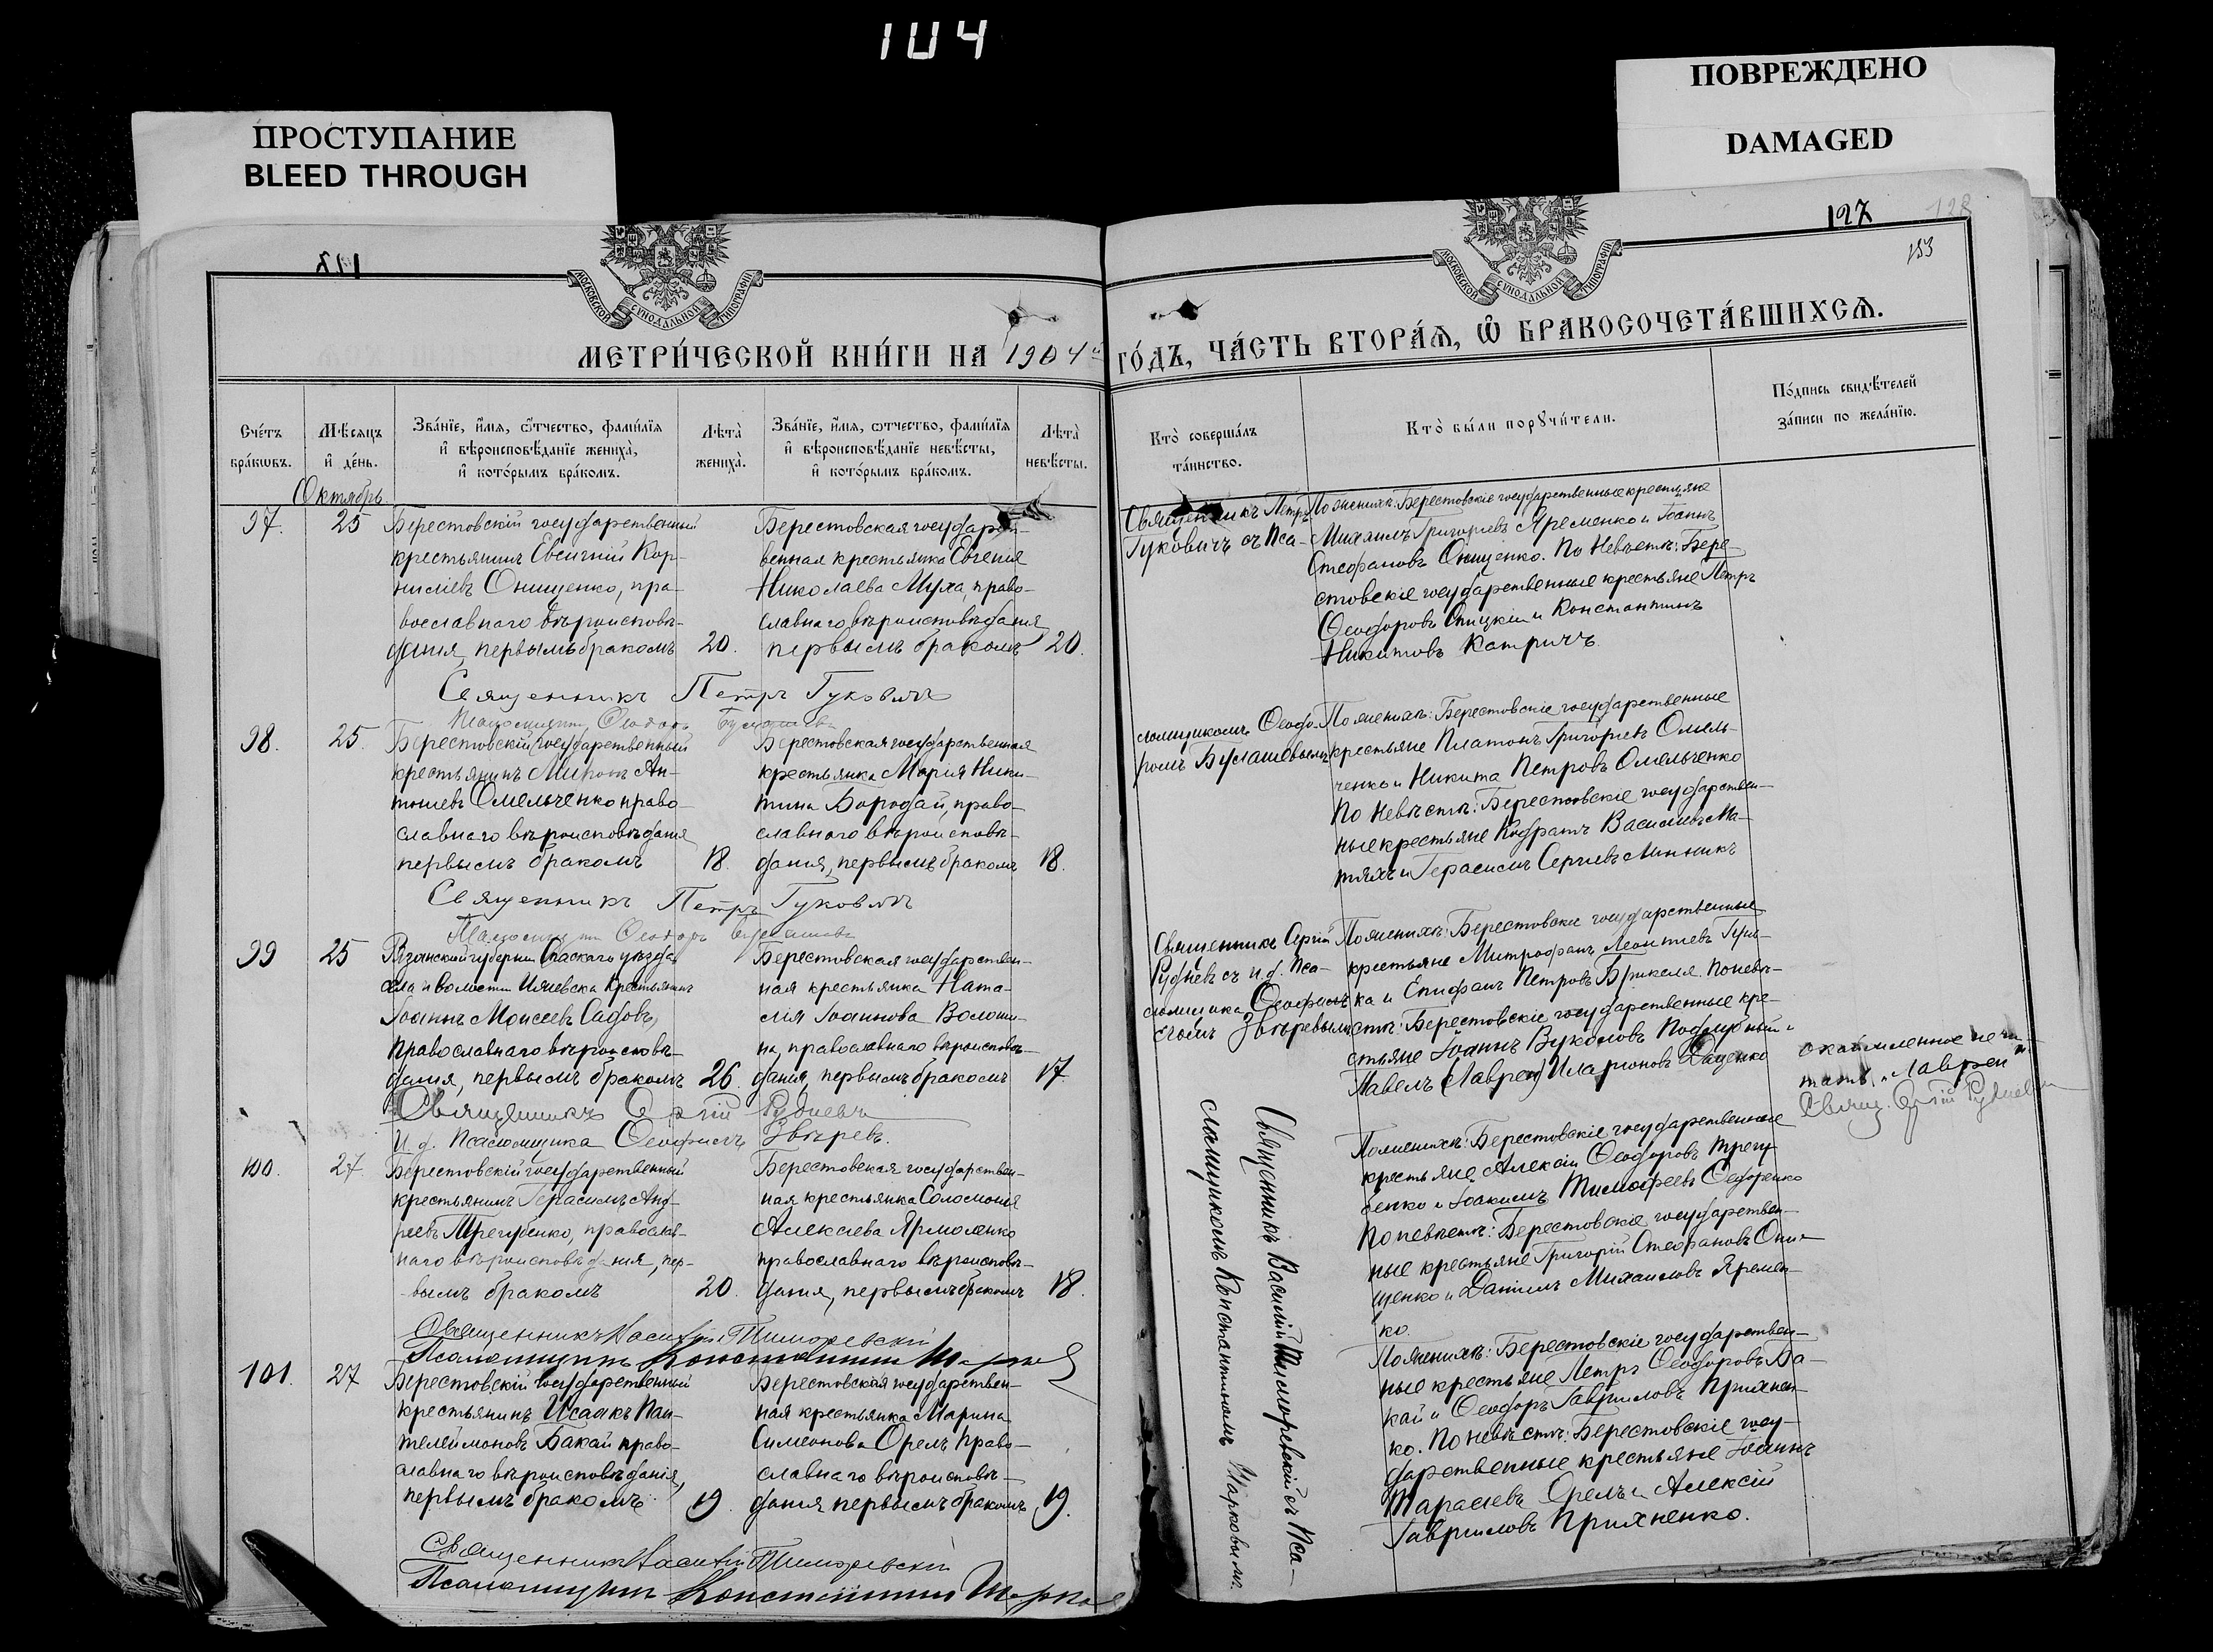 104
ПРОСТУПАНИЕ
BLEED THROUGH
ПОВРЕЖДЕНО
DAMAGED
127
128
153
МОСКОВСКОЙ СѴНОДАЛЬНОЙ ТИПОГРАФІИ
МОСКОВСКОЙ СѴНОДАЛЬНОЙ ТИПОГРАФІИ
МЕТРИ́ЧЕСКОЙ КНИ́ГИ НА 1904й ГО́ДЪ, ЧА́СТЬ ВТОРА́Ѧ, Ѽ БРАКОСОЧЕТА́ВШИХСѦ.
Сче́тъ
бра́кѡвъ.
Мѣ́сяцъ
и҆ де́нь.
Зва́нїе, и҆́мя, ѻ҆́тчество, фами́лїя
и҆ вѣроисповѣ́данїе жениха̀,
и҆ кото́рымъ бра́комъ.
Лѣта̀
жениха̀.
Зва́нїе, и҆́мя, ѻ҆́тчество, фами́лїя
и҆ вѣроисповѣ́данїе невѣ́сты,
и҆ кото́рымъ бра́комъ.
Лѣта̀
невѣ́сты.
Кто̀ соверша́лъ
та́инство.
Кто̀ бы́ли порꙋчи́тели.
По́дпись свидѣ́телей
за́писи по жела́нїю.
Октябрь
97. 25
Берестовскій государственный
крестьянинъ Евгеній Кор-
ниліевъ Онищенко, пра-
вославнаго вѣроисповѣ-
данія, первымъ бракомъ 20.
Берестовская государст-
венная крестьянка Евгенія
Николаева Муха, право-
славнаго вѣроисповѣданія
первымъ бракомъ 20.
Священникъ Петръ
Гуковичъ съ пса-
По женихѣ: Берестовскіе государственные крестьяне
Михаилъ Григорьевъ Яременко и Іоаннъ
Стефановъ Онищенко. По невѣстѣ: Бере-
стовскіе государственные крестьяне Петръ
Ѳеодоровъ Спицкій и Константинъ
Никитовъ Катричъ.
Священникъ Петръ Гуковичъ
Псаломщикъ Ѳеодоръ Буслашевъ
98. 25.
Берестовскій государственный
крестьянинъ Миронъ Ан-
тоніевъ Омельченко право-
славнаго вѣроисповѣданія
первымъ бракомъ 18.
Берестовская государственная
крестьянка Марія Ники-
тина Бородай, право-
славнаго вѣроисповѣ-
данія, первымъ бракомъ 18.
ломщикомъ Ѳеодо-
ромъ Буслашевымъ
По женихѣ: Берестовскіе государственные
крестьяне Платонъ Григорьевъ Омель-
ченко и Никита Петровъ Омельченко
По невѣстѣ: Берестовскіе государствен-
ные крестьяне Кодратъ Васильевъ Ма-
тяхъ и Герасимъ Сергіевъ Линникъ
Священникъ Петръ Гуковичъ
Псаломщикъ Ѳеодоръ Буслашевъ
99 25
Рязанской губерніи Спаскаго уѣзда
села и волости Ижевска крестьянинъ
Іоаннъ Моисеевъ Садовъ,
православнаго вѣроисповѣ-
данія, первымъ бракомъ 26.
Берестовская государствен-
ная крестьянка Ната-
лія Іоаннова Волоши-
на, православнаго вѣроисповѣ-
данія, первымъ бракомъ 17.
Священникъ Сергій
Рудневъ съ и. д. пса-
ломщика Ѳеофил-
Звѣревымъ
По женихѣ: Берестовскіе государственные
крестьяне Митрофанъ Леонтіевъ
ка и Епифанъ Петровъ Брикеля. По невѣ-
стѣ: Берестовскіе государственные кре-
стьяне Іоаннъ Вуколовъ Поддубный и
Павелъ (Лаврен) Иларіоновъ Даценко
тать, „Лаврен"
Свящ. Сергій Рудневъ
Священникъ Сергій Рудневъ
И. д. Псаломщика Звѣревъ.
100. 27
Берестовскій государственный
крестьянинъ Герасимъ Анд-
реевъ Трегубенко, православ-
наго вѣроисповѣданія, пер-
вымъ бракомъ 20.
Берестовская государствен-
ная крестьянка Соломонія
Алексіева Ярмоленко
православнаго вѣроисповѣ-
данія, первымъ бракомъ 18.
Священникъ Василій Тиморевскій съ пса-
ломщикомъ Константиномъ Шарковымъ.
По женихѣ: Берестовскіе государственные
крестьяне Алексій Ѳеодоровъ Трегу-
бенко и Іоакимъ Тимофеевъ Федоренко
По невѣстѣ: Берестовскіе государствен-
ные крестьяне Григорій Стефановъ Они-
щенко и Даніилъ Михаиловъ Яремен-
ко.
Священникъ Василій Тиморевскій
Псаломщикъ Константинъ Шарковъ
101. 27
Берестовскій государственный
крестьянинъ Исаакъ Пан-
телеймоновъ Бакай право-
славнаго вѣроисповѣданія,
первымъ бракомъ. 19.
Берестовская государствен-
ная крестьянка Марина
Симеонова Орелъ право-
славнаго вѣроисповѣ-
данія первымъ бракомъ 19.
По женихѣ: Берестовскіе государствен-
ные крестьяне Петръ Ѳеодоровъ Ба-
кай и Ѳеодоръ Гавриловъ Прихнен-
ко. По невѣстѣ: Берестовскіе госу-
дарственные крестьяне Іоаннъ
Тарасіевъ Орелъ и Алексій
Гавриловъ Прихненко.
Священникъ Василій Тиморевскій
Псаломщикъ Константинъ Шарковъ